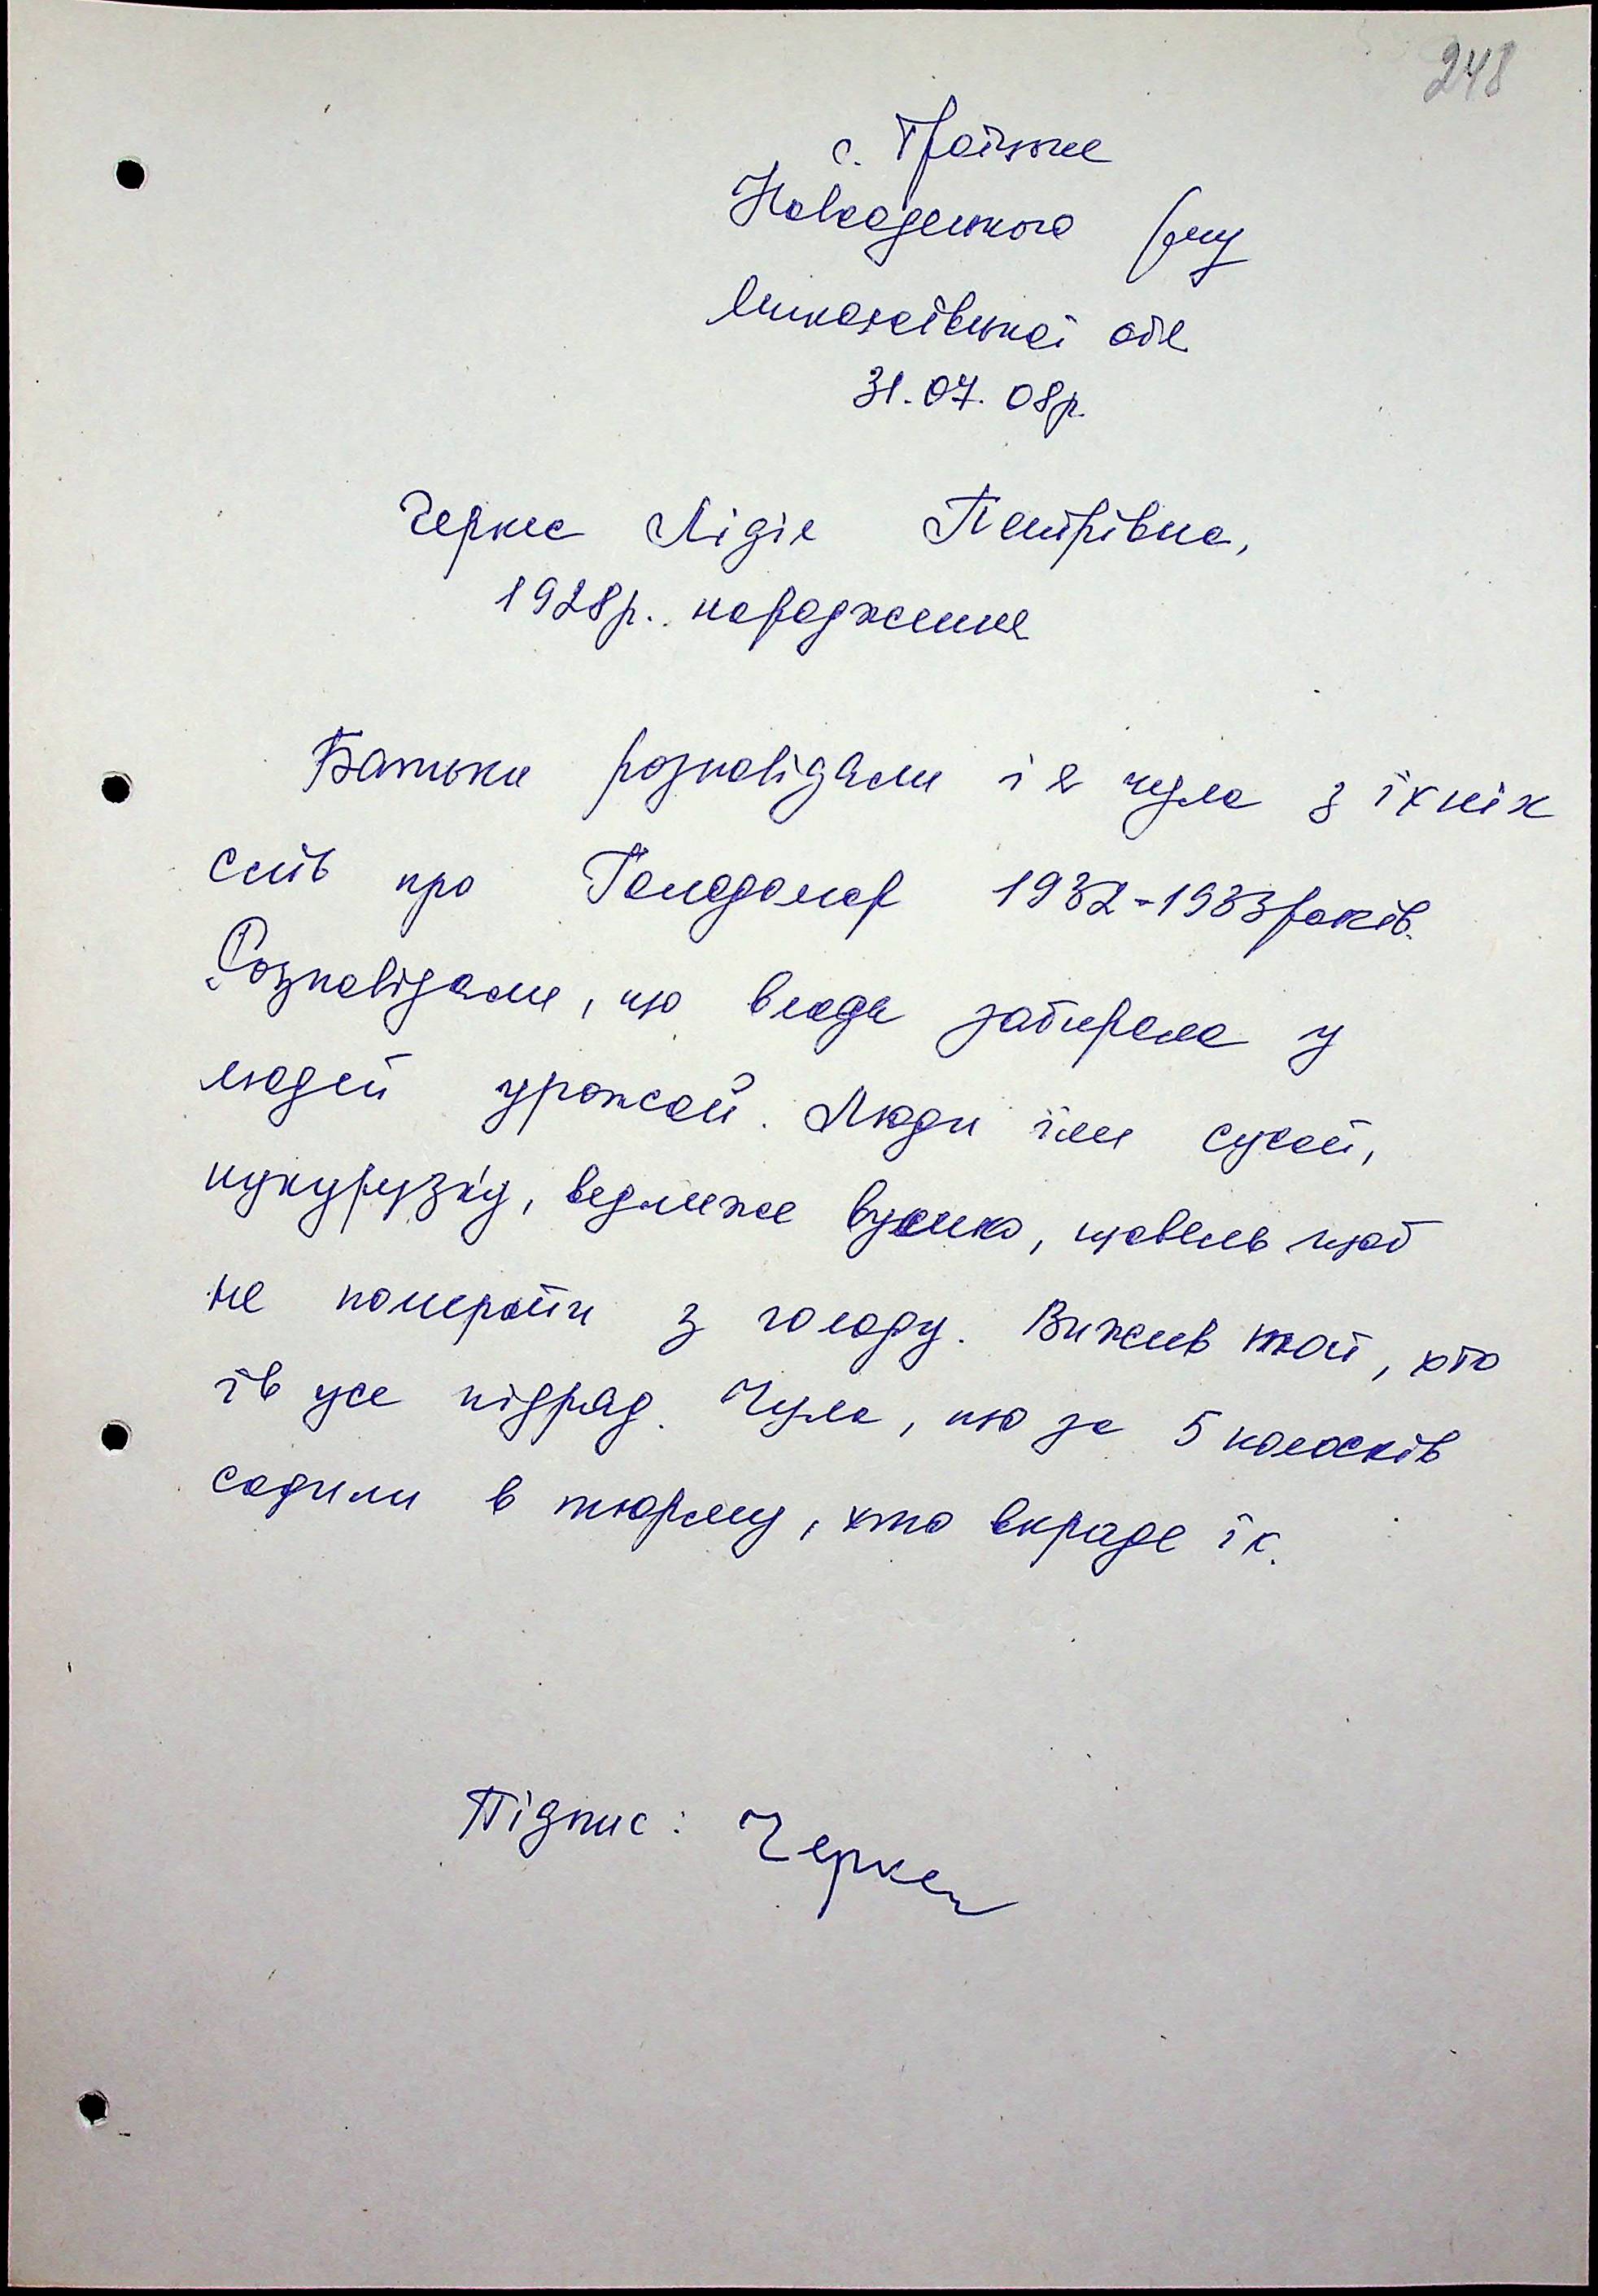 248
с. Троїцьке
Новоодеського р-ну
Миколаївської обл
31.07.08р.
Черкес Лідія Петрівна,
1928р. народження
Батьки розповідали і я чула з їхніх
слів про Голодомор 1932-1933років.
Розповідали, що влада забирала у
людей урожай. Люди їли сусай,
кукурузку, ведмеже вушко, щавель щоб
не померти з голоду. Вижив той, хто
їв усе підряд. Чула, що за 5 колосків
садили в тюрму, хто вкраде їх.
Підпис: Черкес